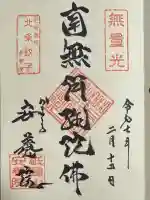 無量光
令和七年
二月十五日
南無阿弥陀佛
北条政子
かまくら
安養院